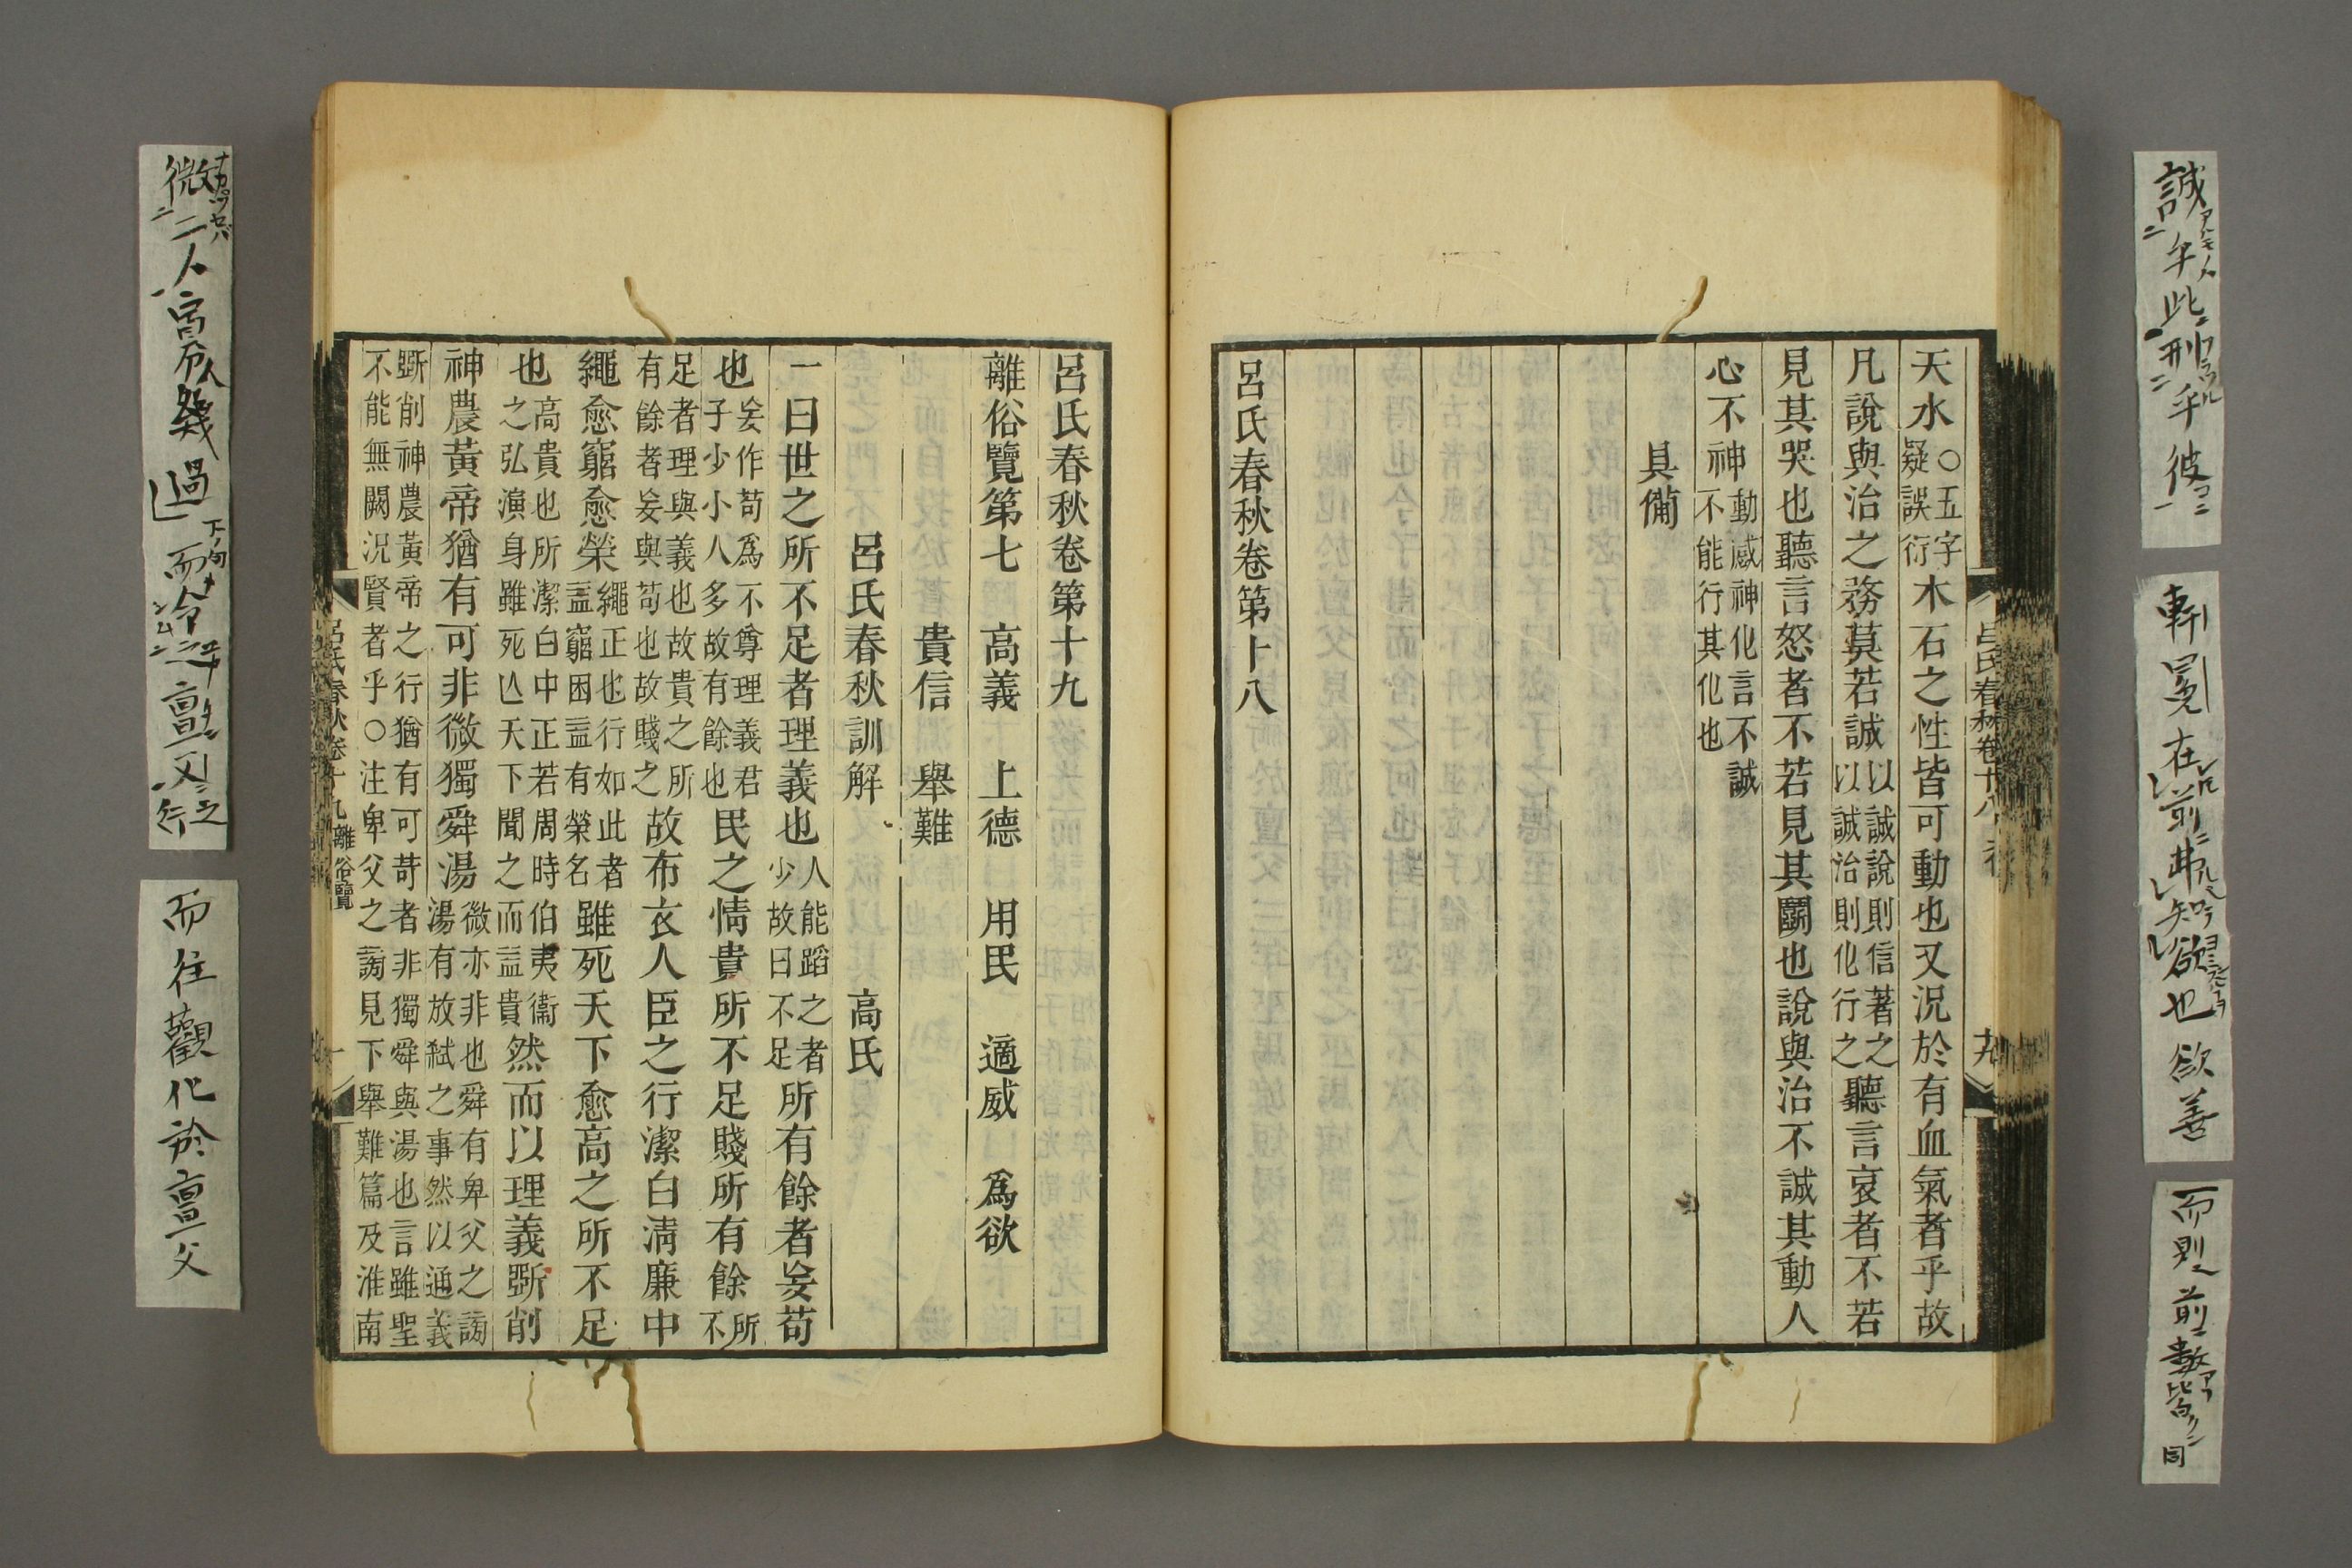 天水○五字疑誤衍木石之性皆可動也又況於有血氣者乎故
凡說與治之務莫若誠以誠說則信著之以誠治則化行之聽言哀者不若
見其哭也聽言怒者不若見其鬭也說與治不誠其動人
心不神動感神化言不誠不能行其化也
具備
呂氏春秋卷第十八
呂氏春秋卷十八
十九
呂氏春秋卷第十九
離俗覽第七 高義 上德 用民 適威 爲欲
貴信 舉難
呂氏春秋訓解 高氏
一曰世之所不足者理義也人能蹈之者少故曰不足所有餘者妄苟
也妄作苟爲不尊理義君子少小人多故有餘也民之情貴所不足賤所有餘所不
足者理與義也故貴之所有餘者妄與苟也故賤之故布衣人臣之行潔白淸廉中
繩愈窮愈榮繩正也行如此者雖窮困益有榮名雖死天下愈高之所不足
也高貴也所潔白中正若周時伯夷衞之弘演身雖死亾天下聞之而益貴然而以理義斲削
神農黃帝猶有可非微獨舜湯微亦非也舜有卑父之謗湯有放弒之事然以通義
斲削神農黃帝之行猶有可苛者非獨舜與湯也言雖聖不能無闕況賢者乎○注卑父之謗見下舉難篇及淮南
呂氏春秋卷十九離俗覽
一
誠乎此刑乎彼
軒冕在前弗知欲也欲善
而則前數皆同
過
而往觀化於亶父